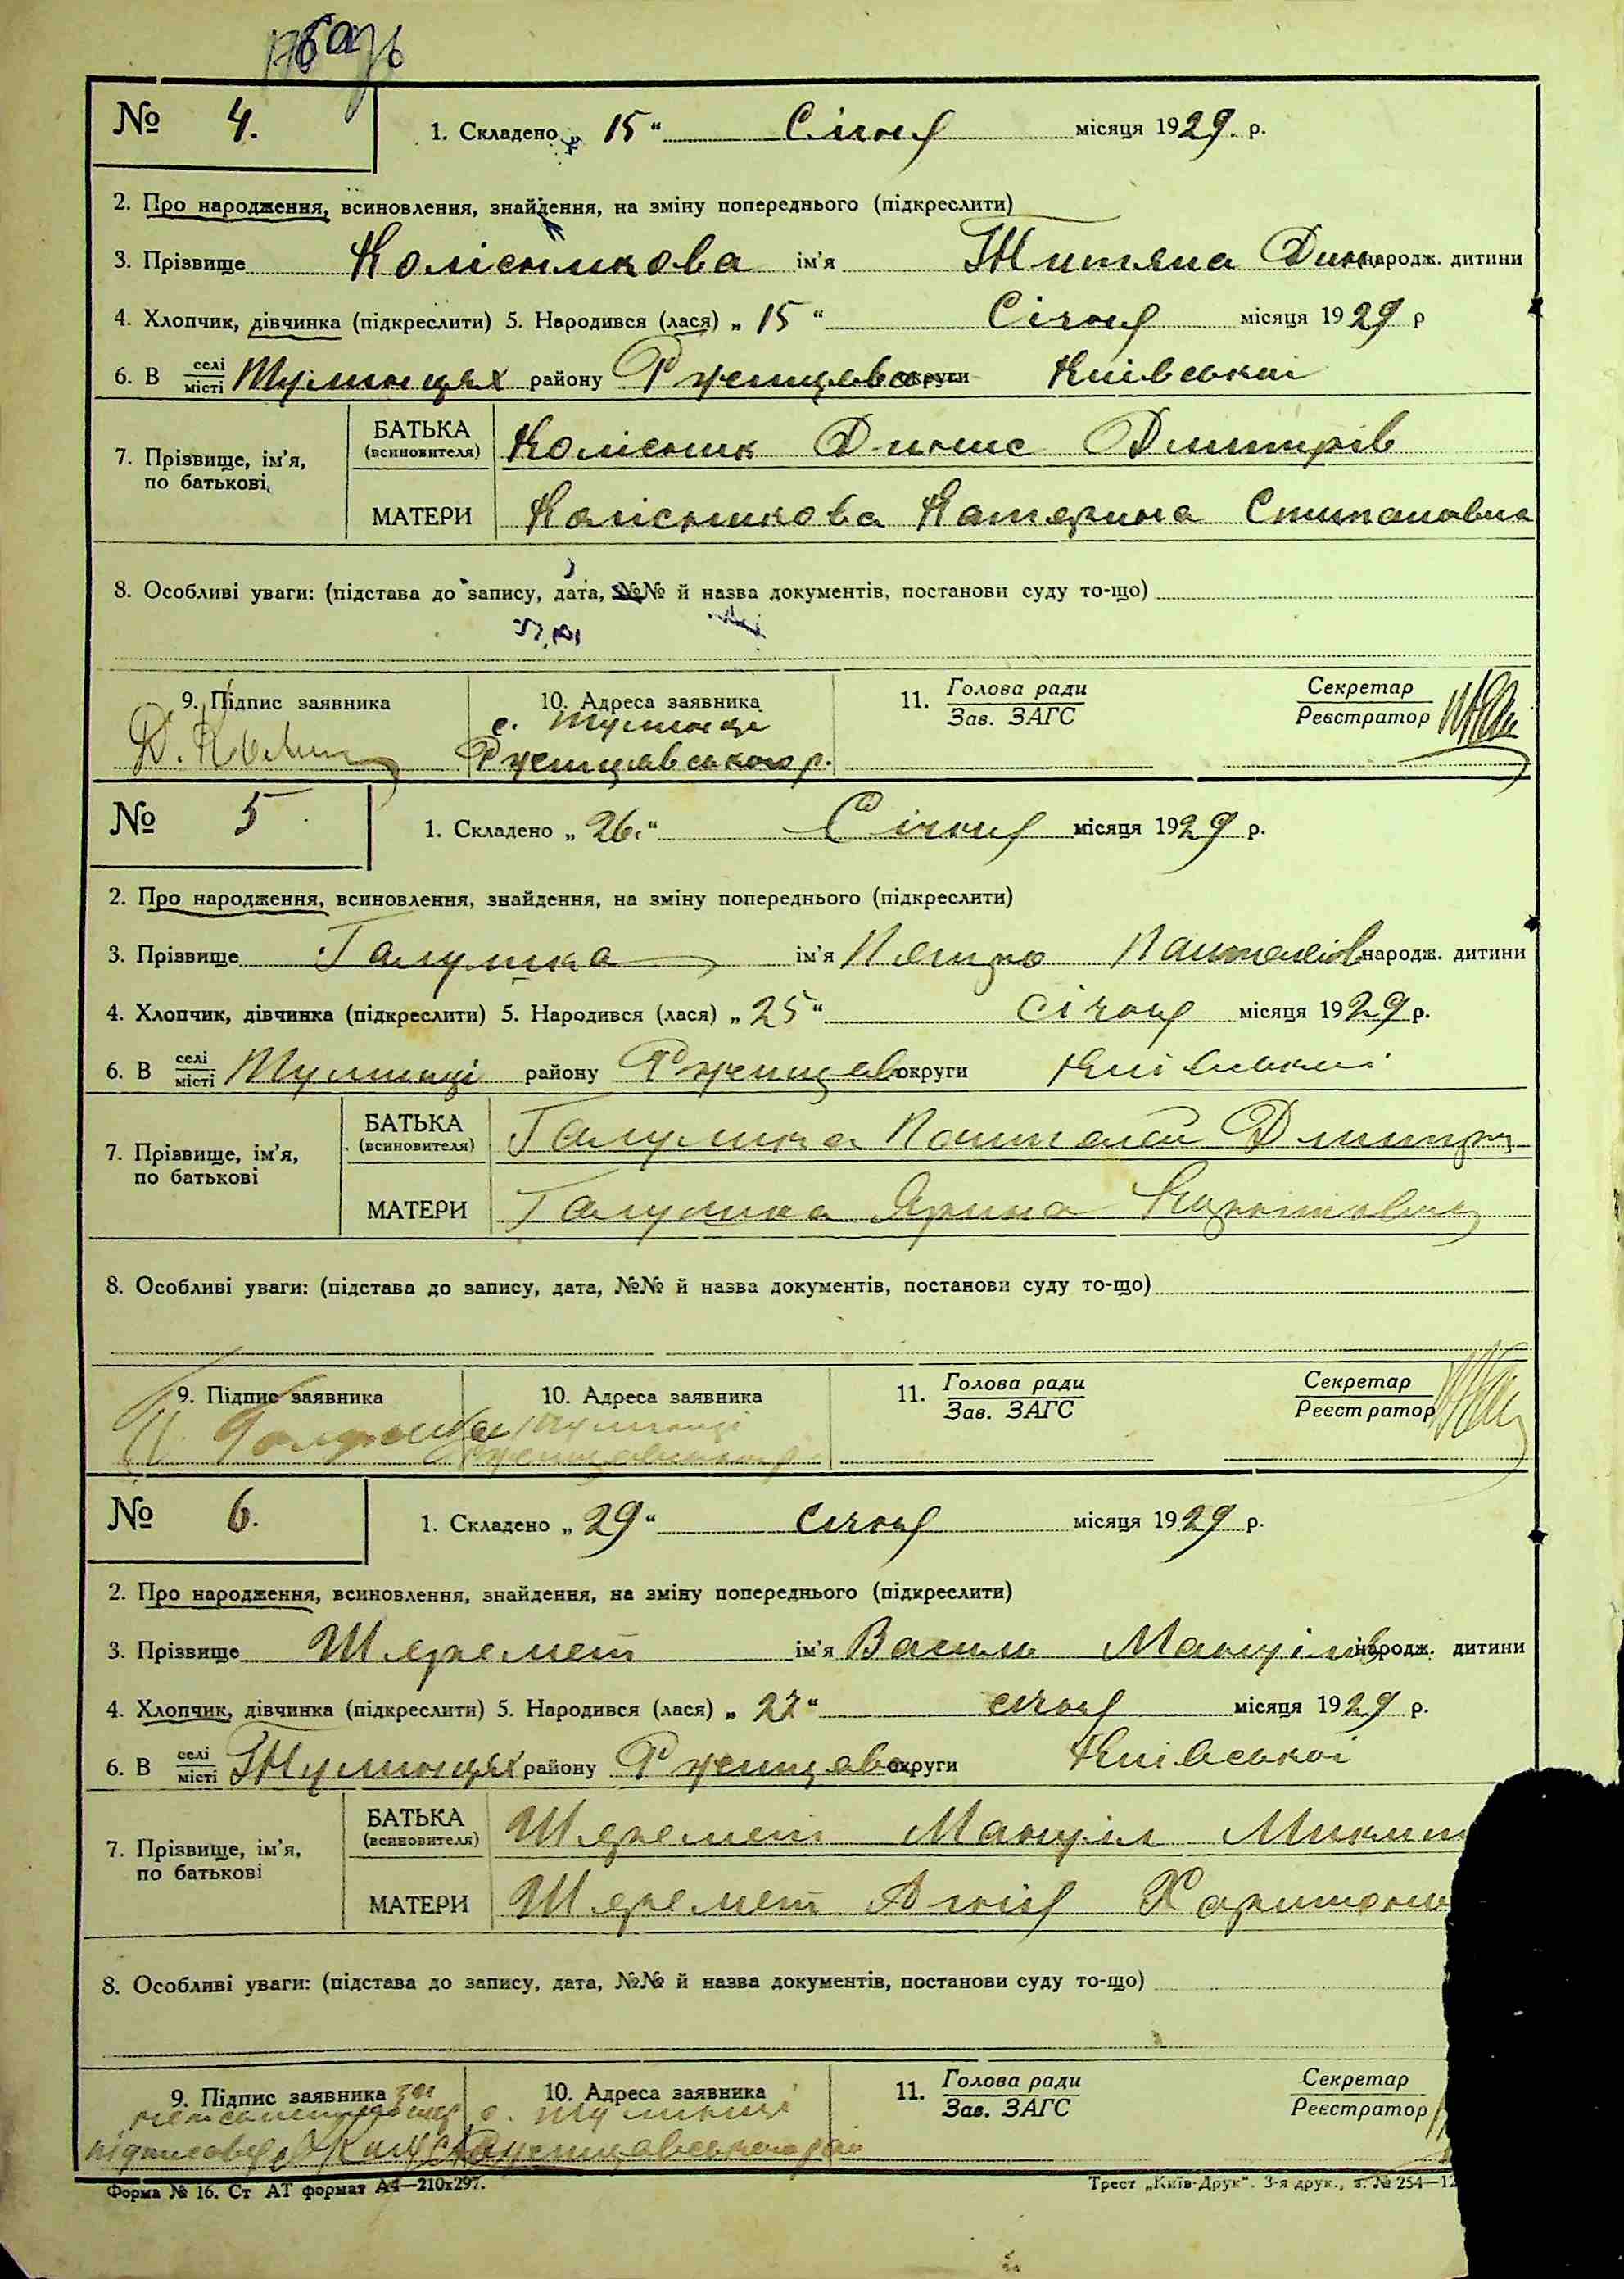 № 4. 1. Складено „ 15 “ Січня місяця 1929. р.
2. Про народження, всиновлення, знайдення, на зміну попереднього (підкреслити)
3. Прізвище Колісникова ім'я Титяна Дин. народж. дитини
4. Хлопчик, дівчинка (підкреслити) 5. Народився (лася) „ 15 “ Січня місяця 1929 р
6. В селі місті Тулинцях району Ржищевсь округи Київської
7. Прізвище, ім'я, по батькові
БАТЬКА (всиновителя) Колісник Динис Дмитрів
МАТЕРИ Колісникова Катерина Степановна
8. Особливі уваги: (підстава до запису, дата, №№ й назва документів, постанови суду то-що)
9. Підпис заявника 10. Адреса заявника 11. Голова ради Зав. ЗАГС Секретар Реєстратор
с. Тулинці
Ржищевського р.
№ 5 1. Складено „ 26. “ Січня місяця 1929 р.
2. Про народження, всиновлення, знайдення, на зміну попереднього (підкреслити)
3. Прізвище Галушка ім'я Петро Пантелеїв народж. дитини
4. Хлопчик, дівчинка (підкреслити) 5. Народився (лася) „ 25 “ січня місяця 1929 р.
6. В селі місті Тулинці району Ржищев округи Київської
7. Прізвище, ім'я, по батькові
БАТЬКА (всиновителя) Галушка Пантелей Дмитр
МАТЕРИ Галушка Ярина
8. Особливі уваги: (підстава до запису, дата, №№ й назва документів, постанови суду то-що)
9. Підпис заявника 10. Адреса заявника 11. Голова ради Зав. ЗАГС Секретар Реєстратор
П. Галушка с. Тулинці
Ржищевського р
№ 6. 1. Складено „ 29 “ січня місяця 1929 р.
2. Про народження, всиновлення, знайдення, на зміну попереднього (підкреслити)
3. Прізвище Шеремет ім'я Василь Мануілів народж. дитини
4. Хлопчик, дівчинка (підкреслити) 5. Народився (лася) „ 27 “ січня місяця 1929 р.
6. В селі місті Тулинцях району Ржищевс округи Київської
7. Прізвище, ім'я, по батькові
БАТЬКА (всиновителя) Шеремет Мануіл Микит
МАТЕРИ Шеремет Харитони
8. Особливі уваги: (підстава до запису, дата, №№ й назва документів, постанови суду то-що)
9. Підпис заявника 10. Адреса заявника 11. Голова ради Зав. ЗАГС Секретар Реєстратор
за с. Тулинці
Ржищевського рай
Форма № 16. Ст АТ формат А4—210x297. Трест „Київ-Друк“. 3-я друк., з. № 254—12